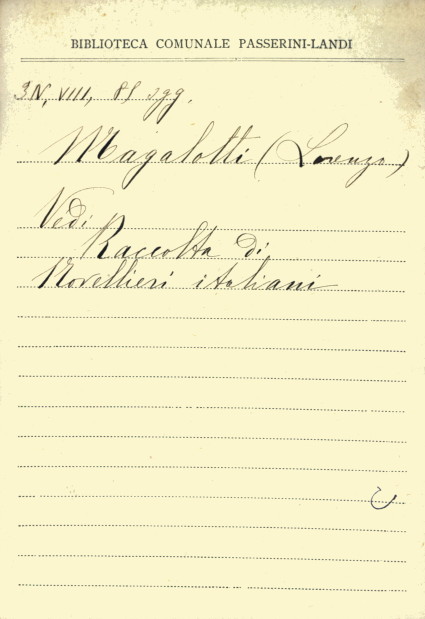 BIBLIOTECA COMUNALE PASSERINI-LANDI
3N, VIII, 81 sgg.
Magalotti (Lorenzo)
Vedi
Raccolta di
Novellieri italiani